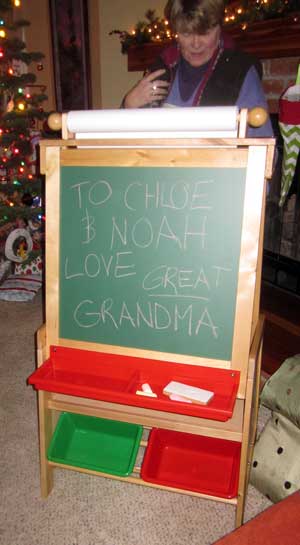 TO CHLOE
& NOAH
LOVE GREAT
GRANDMA